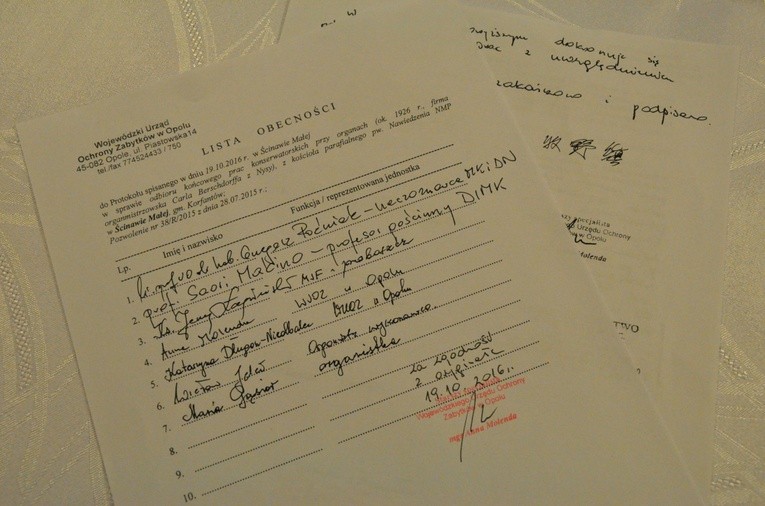 Wojewódzki Urząd
Ochrony Zabytków w Opolu
45-082 Opole, ul. Piastowska14
tel./fax 774524433 / 750
LISTA OBECNOŚCI
do Protokołu spisanego w dniu 19.10.2016 r. w Ścinawie Małej
w sprawie odbioru końcowego prac konserwatorskich przy organach (ok. 1926 r., firma
organmistrzowska Carla Berschdorffa z Nysy), z kościoła parafialnego pw. Nawiedzenia NMP
w Ścinawie Małej, gm. Korfantów;
Pozwolenie nr 38/R/2015 z dnia 28.07.2015 r.;
Lp. Imię i nazwisko Funkcja / reprezentowana jednostka
1. hab. Grzegorz Poźniak - rzeczoznawca MKiDN
2. prof. Saori Makino - profesor gościnny DIMK
3. Ks. Jerzy MSF - proboszcz
4. Anna Molenda WUOZ w Opolu
5. Katarzyna Długosz-Niedbalec WUOZ w Opolu
6. wykonawca
7. Maria Gąsior organistka
8.
9.
10.
za zgodność
z oryginałem
19.10.2016r.
Wojewódzkiego Urzędu Ochrony
Zabytków w Opolu
mgr Anna Molenda
dokonuje się
z uwzględnieniem
zakończono i podpisano.
牧野
specjalista
Urzędu Ochrony
w Opolu
Molenda